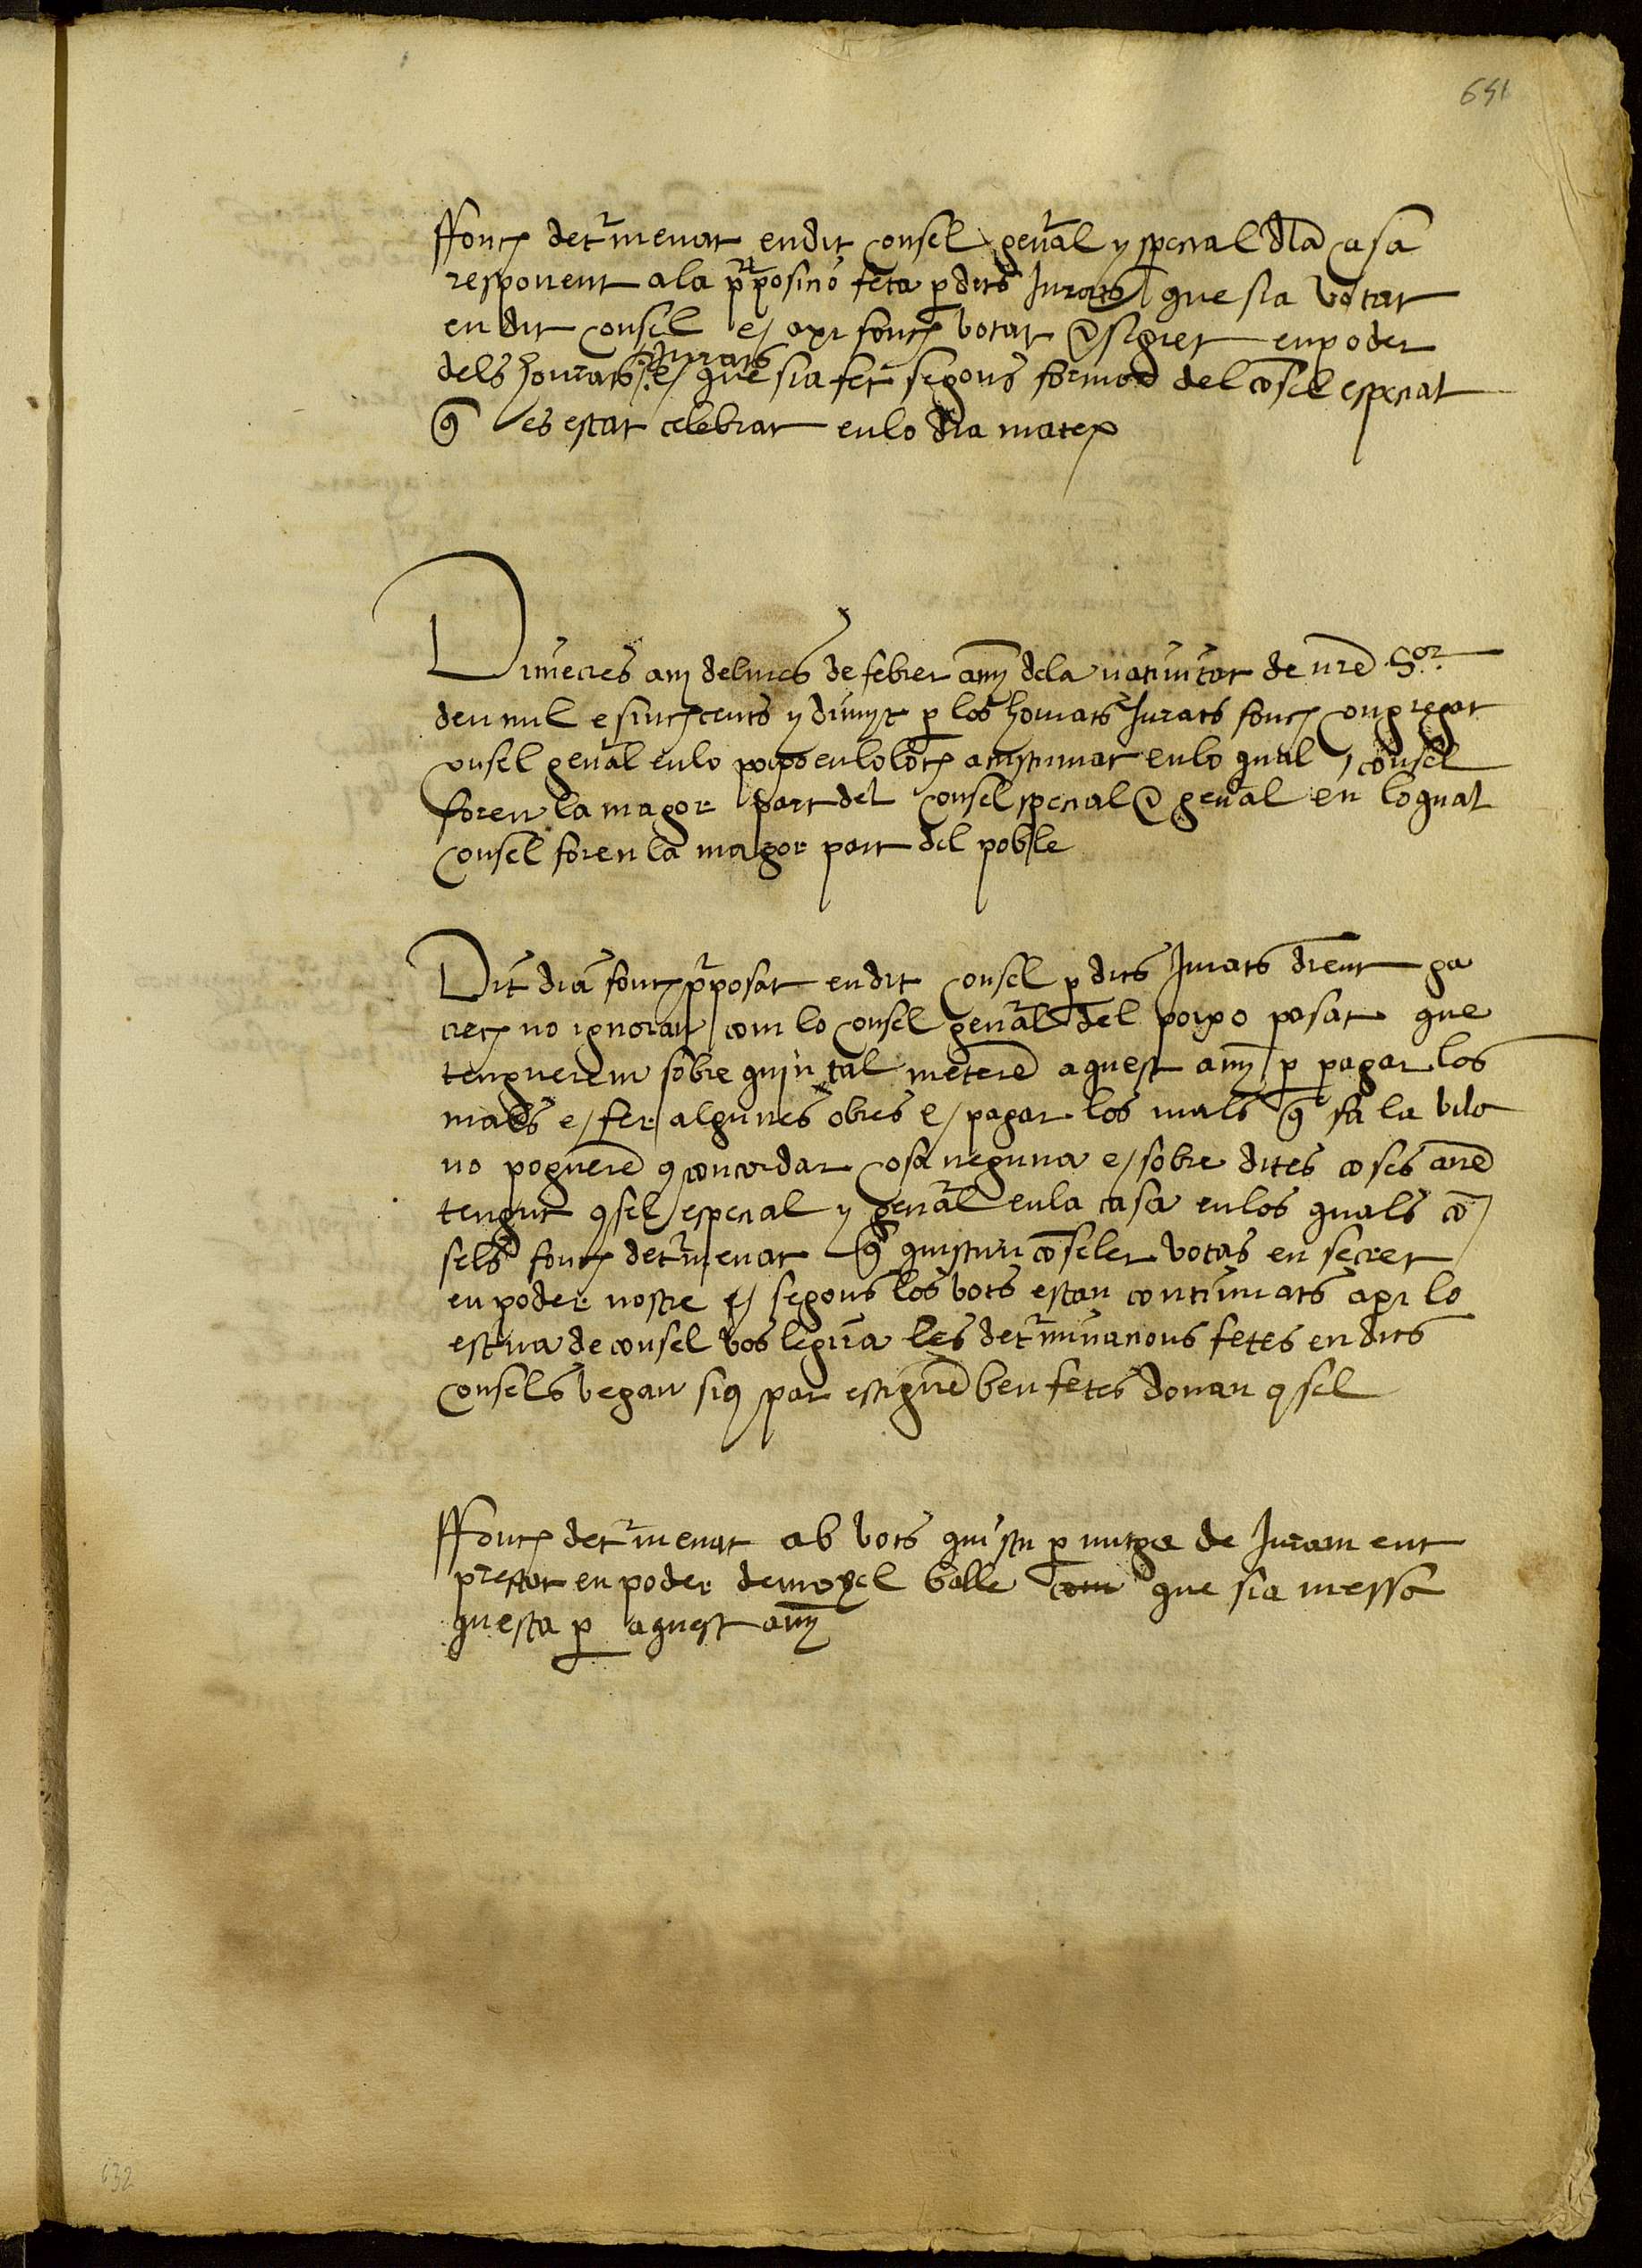 651
ffonch detrmenat en dit consel genral y special dla casa
responent ala prposicio feta p dits Jurats que sia votat
en dit consel e axi fonch votat e segret en poder
dels honrats Jurats e que sia fet segons forma del cõsel especial
q es estat celebrat en lo dia matex
Dimecres any del mes de febrer any dela nativitat de nre Sor
de mil e sinch cents y divuyt p los honrats Jurats fonch congregat
consel genral en lo porxo en lo loch acustumat en lo qual consel
foren la magor part del consel special e genral en lo qual
consel foren la magor part del poble
Dit dia fonch prposat en dit consel p dits Jurats dient ga
crech no ignoran com lo consel genral del porxo pasat que
tenguerem sobre quin tal meterẽ aquest any p pagar los
mals e fer algunes obres e pagar los mals q fa la vila
no poguerẽ concordar cosa neguna e sobre dites coses avẽ
tengut 9sel especial y genral en la casa en los quals cõ
sels fonch detrmenat q quiscun cõseler votas en secret
en poder nostre e segons los vots estan continuats axi lo
escriva de consel vos legira les detrminacions fetes en dits
consels vegan siq par estiguẽ ben fetes donan 9sel
ffonch detrmenat ab vots quiscu p mitga de Jurament
prestat en poder de mossel balle com que sia messa
questa p aquest any
632